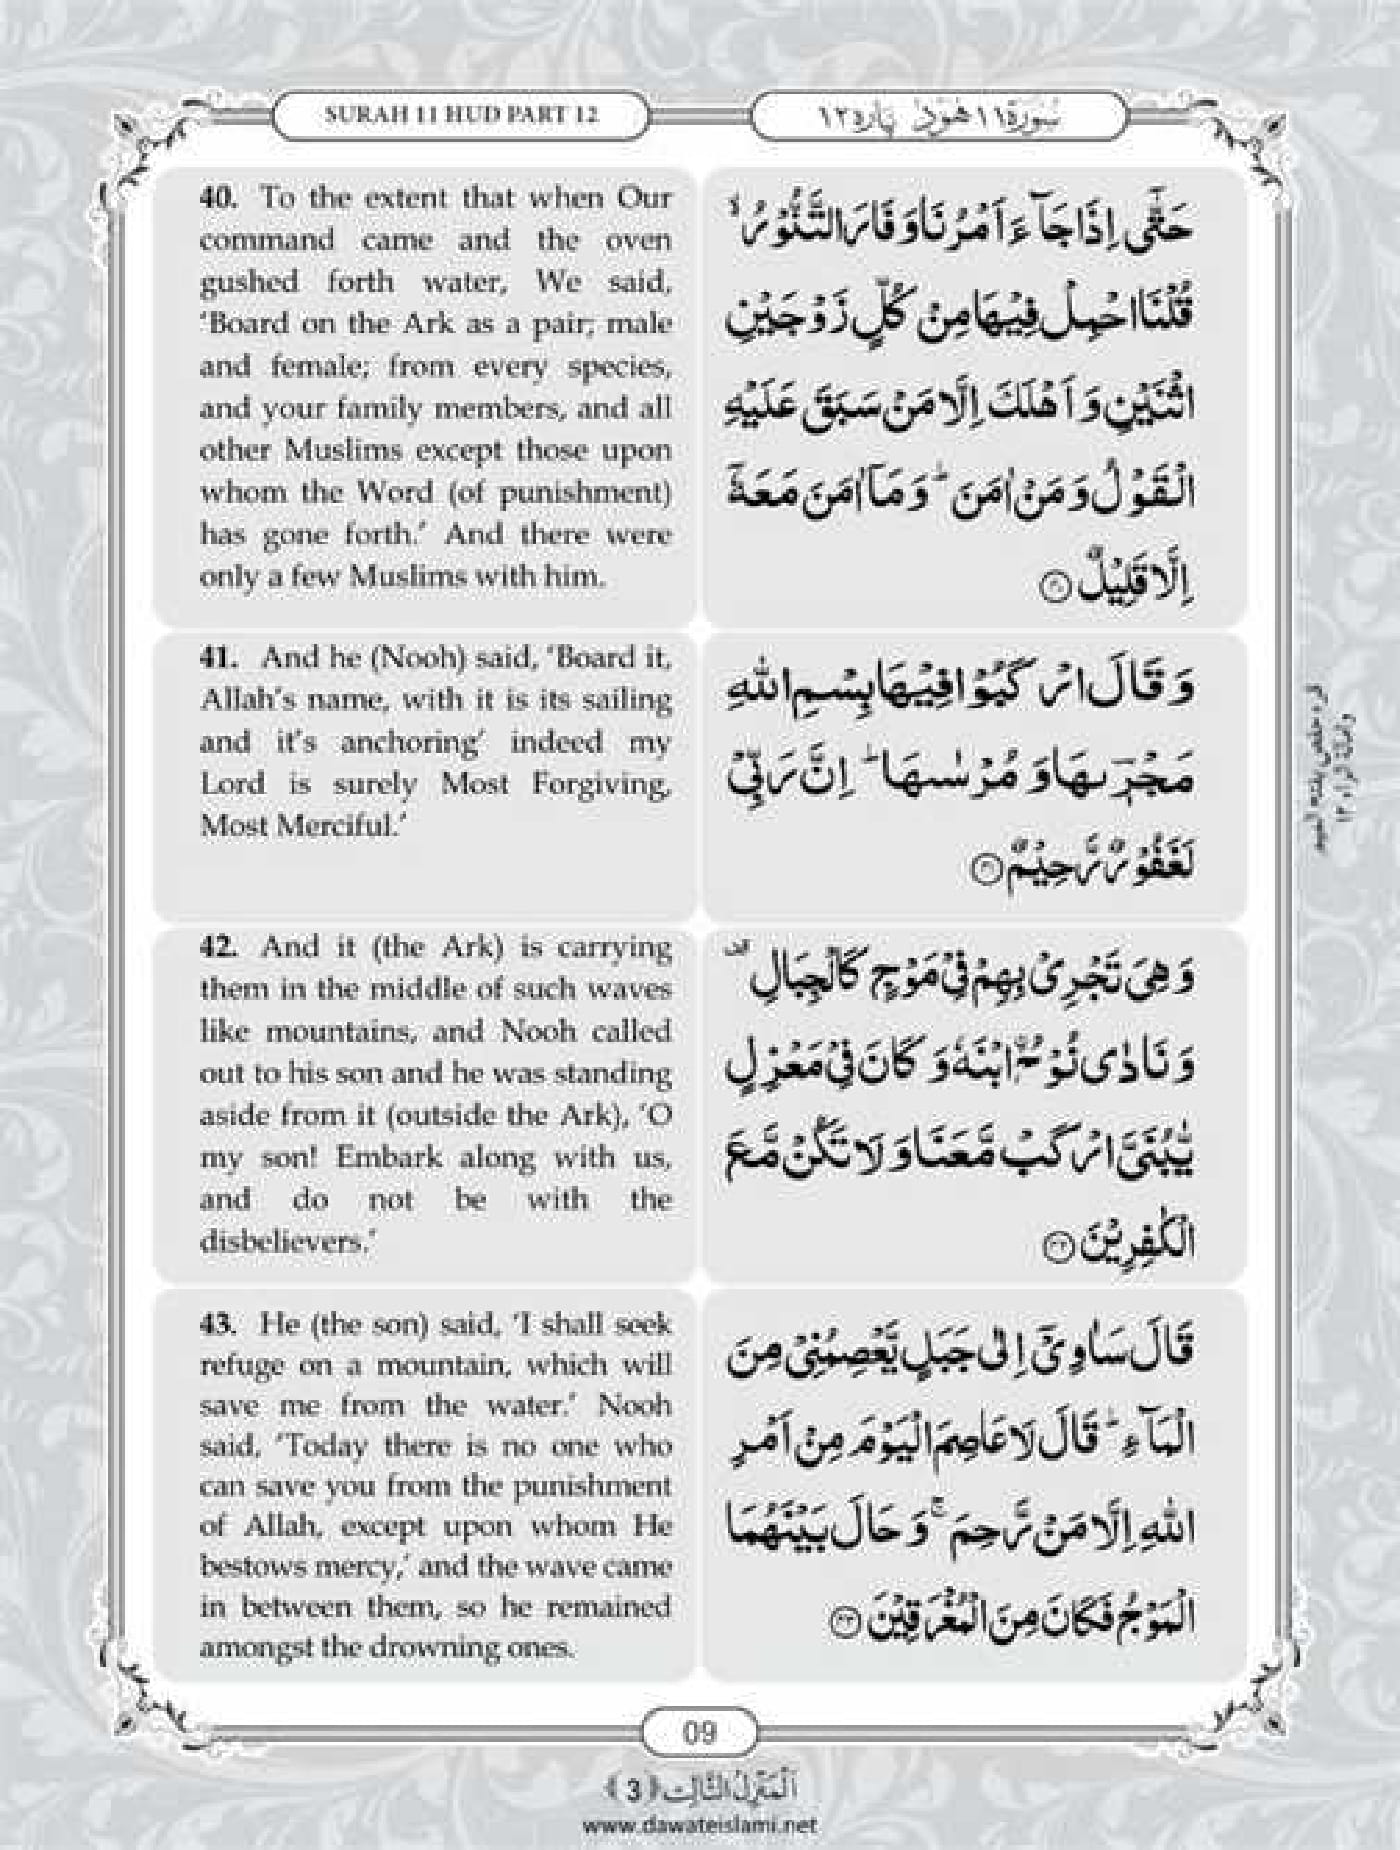 SURAH 11 HUD PART 12
سُورَة ١١ هُوْد پارہ ١٢
40. To the extent that when Our
command came and the oven
gushed forth water, We said,
‘Board on the Ark as a pair; male
and female; from every species,
and your family members, and all
other Muslims except those upon
whom the Word (of punishment)
has gone forth.’ And there were
only a few Muslims with him.
حَتّٰۤى اِذَا جَآءَ اَمْرُنَا وَ فَارَ التَّنُّوْرُۙ
قُلْنَا احْمِلْ فِیْهَا مِنْ كُلٍّ زَوْجَیْنِ
اثْنَیْنِ وَ اَهْلَكَ اِلَّا مَنْ سَبَقَ عَلَیْهِ
الْقَوْلُ وَ مَنْ اٰمَنَؕ وَ مَاۤ اٰمَنَ مَعَهٗۤ
اِلَّا قَلِیْلٌ ﴿۴۰﴾
41. And he (Nooh) said, ‘Board it,
Allah’s name, with it is its sailing
and it’s anchoring’ indeed my
Lord is surely Most Forgiving,
Most Merciful.’
وَ قَالَ ارْكَبُوْا فِیْهَا بِسْمِ اللّٰهِ
مَجْرٖىهَا وَ مُرْسٰىهَاؕ اِنَّ رَبِّیْ
لَغَفُوْرٌ رَّحِیْمٌ ﴿۴۱﴾
42. And it (the Ark) is carrying
them in the middle of such waves
like mountains, and Nooh called
out to his son and he was standing
aside from it (outside the Ark), ‘O
my son! Embark along with us,
and do not be with the
disbelievers.’
وَ هِیَ تَجْرِیْ بِهِمْ فِیْ مَوْجٍ كَالْجِبَالِ۫
وَ نَادٰى نُوْحُ ابْنَهٗ وَ كَانَ فِیْ مَعْزِلٍ
یّٰبُنَیَّ ارْكَبْ مَّعَنَا وَ لَا تَكُنْ مَّعَ
الْكٰفِرِیْنَ ﴿۴۲﴾
43. He (the son) said, ‘I shall seek
refuge on a mountain, which will
save me from the water.’ Nooh
said, ‘Today there is no one who
can save you from the punishment
of Allah, except upon whom He
bestows mercy,’ and the wave came
in between them, so he remained
amongst the drowning ones.
قَالَ سَاٰوِیْۤ اِلٰى جَبَلٍ یَّعْصِمُنِیْ مِنَ
الْمَآءِؕ قَالَ لَا عَاصِمَ الْیَوْمَ مِنْ اَمْرِ
اللّٰهِ اِلَّا مَنْ رَّحِمَۚ وَ حَالَ بَیْنَهُمَا
الْمَوْجُ فَكَانَ مِنَ الْمُغْرَقِیْنَ ﴿۴۳﴾
09
اَلْمَنْزِلُ الثَّالِث ﴿3﴾
www.dawateislami.net